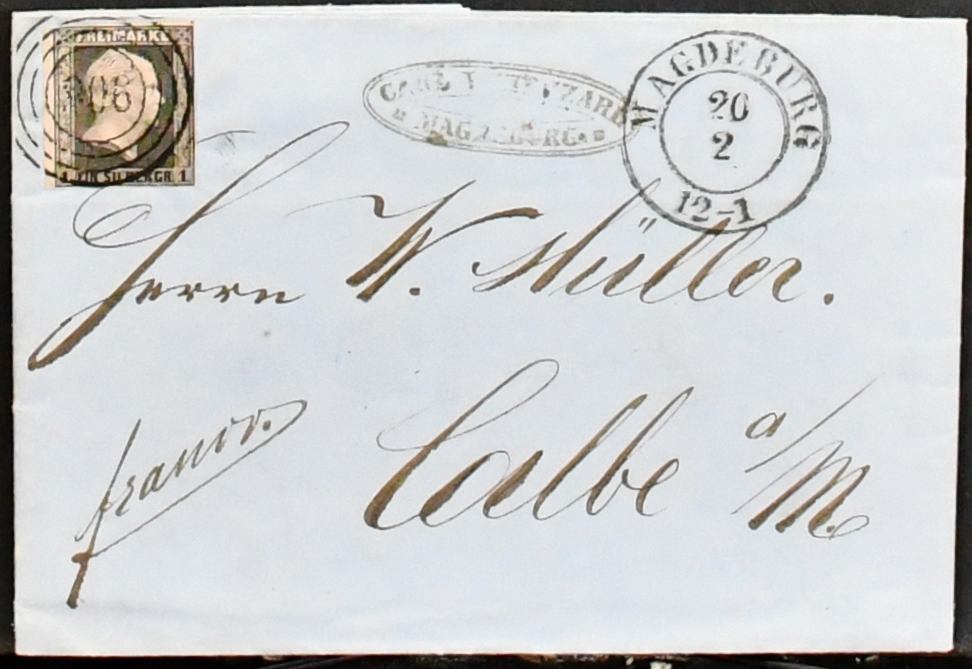 FREIMARKE
1 EIN SILBERGR. 1
CARL
MAGDEBURG.
MAGDEBURG
20
2
12-1
Herrn W. Müller.
franco.
Calbe a/M.